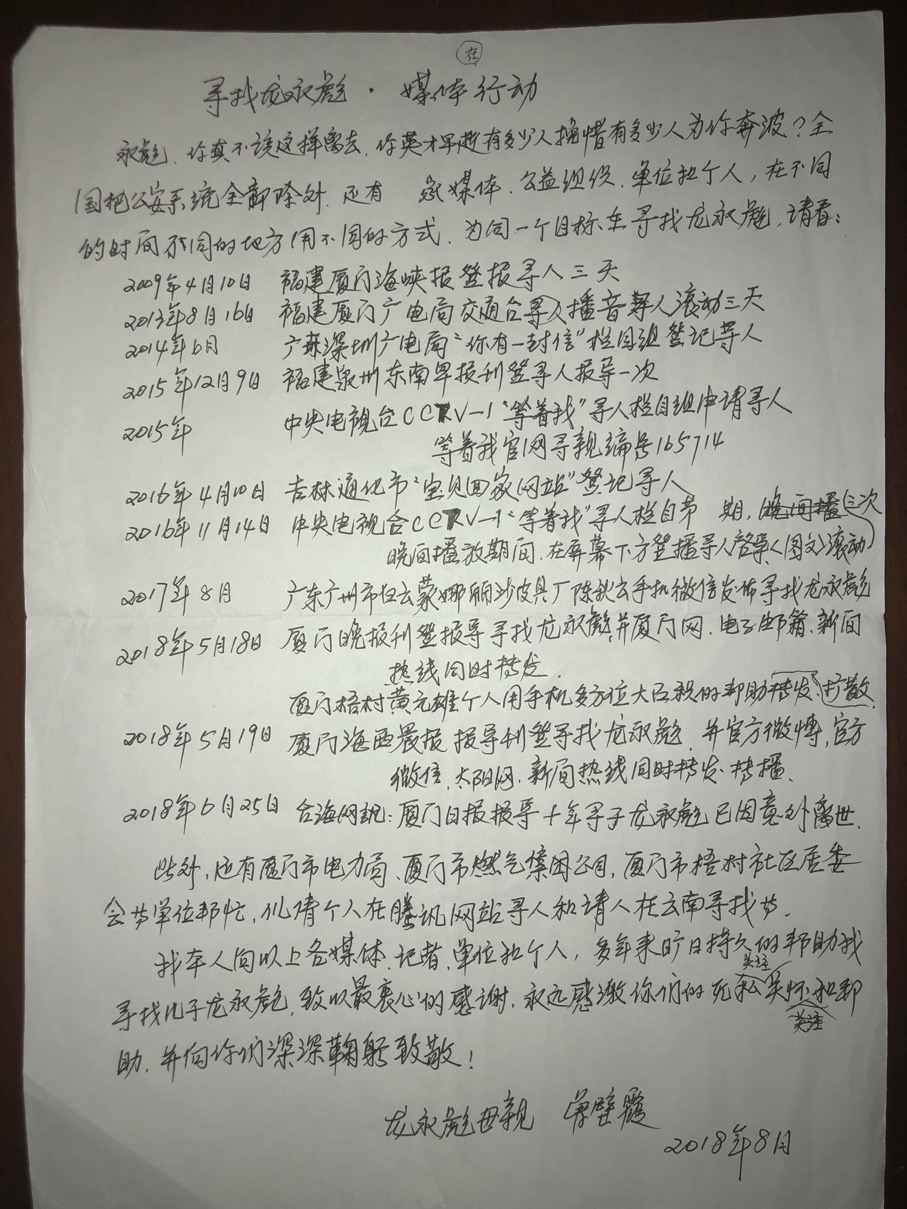 在
寻找龙永彪·媒体行动
永彪,你真不该这样离去,你英才早逝有多少人惋惜有多少人为你奔波?全
国把公安系统全部除外,还有 家媒体、公益组织、单位和个人,在不同
的时间不同的地方用不同的方式,为同一个目标在寻找龙永彪,请看:
2009年4月10日 福建厦门海峡报登报寻人三天
2013年8月16日 福建厦门广电局交通台寻人播音寻人滚动三天
2014年6月 广东深圳广电局“你有一封信”栏目组登记寻人
2015年12月9日 福建泉州东南早报刊登寻人报导一次
2015年 中央电视台CCTV-1“等着我”寻人栏目组申请寻人
等着我官网寻亲编号165714
2016年4月10日 吉林通化市“宝贝回家网站”登记寻人
2016年11月14日 中央电视台CCTV-1“等着我”寻人栏目第 期,晚间播三次
晚间播放期间,在屏幕下方登播寻人启事(图文)滚动
2017年8月 广东广州市白云蒙娜丽沙皮具厂陈秋云手机微信发布寻找龙永彪
2018年5月18日 厦门晚报刊登报导寻找龙永彪并厦门网、电子邮箱、新闻
热线同时转发.
厦门梧村黄元雄个人用手机多方位大面积的帮助转发、扩散
2018年5月19日 厦门海西晨报报导刊登寻找龙永彪,并官方微博,官方
微信,太阳网、新闻热线同时转发、转播.
2018年6月25日 台海网讯:厦门日报报导十年寻子龙永彪已因意外离世.
此外,还有厦门市电力局、厦门市燃气集团公司,厦门市梧村社区居委
会等单位帮忙,以请个人在腾讯网站寻人和请人在云南寻找等.
我本人向以上各媒体、记者、单位和个人,多年来旷日持久的帮助我
关注
寻找儿子龙永彪,致以最衷心的感谢,永远感激你们的无私关怀和帮
关注
助,并向你们深深鞠躬致敬!
龙永彪母亲 曾壁霞
2018年8月